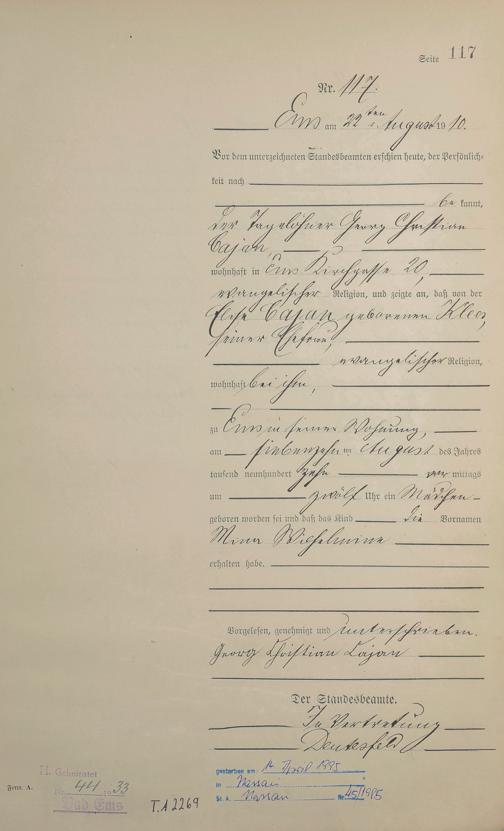 Seite 117
Nr. 117.
Ems am 22ten August 1910.
Vor dem unterzeichneten Standesbeamten erschien heute, der Persönlich-
keit nach
be kannt,
der Tagelöhner Georg Christian
Cajan,
wohnhaft in Ems Kirchgasse 20,
evangelischer Religion, und zeigte an, daß von der
Cajan geborenen
seiner Ehefrau,
evangelischer Religion,
wohnhaft bei ihm,
zu Ems in seiner Wohnung,
am siebenzehnten August des Jahres
tausend neunhundert zehn vor mittags
um zwölf Uhr ein Mädchen
geboren worden sei und daß das Kind die Vornamen
Mina Wilhelmine
erhalten habe.
Vorgelesen, genehmigt und unterschrieben.
Georg Christian Cajan
Der Standesbeamte.
In Vertretung
H. Geheiratet
Nr. 44 1933
Bad Ems
Form. A.
T.A 2269
gestorben am April 1985
in Nassau
St. A. Nassau Nr. 45/1985